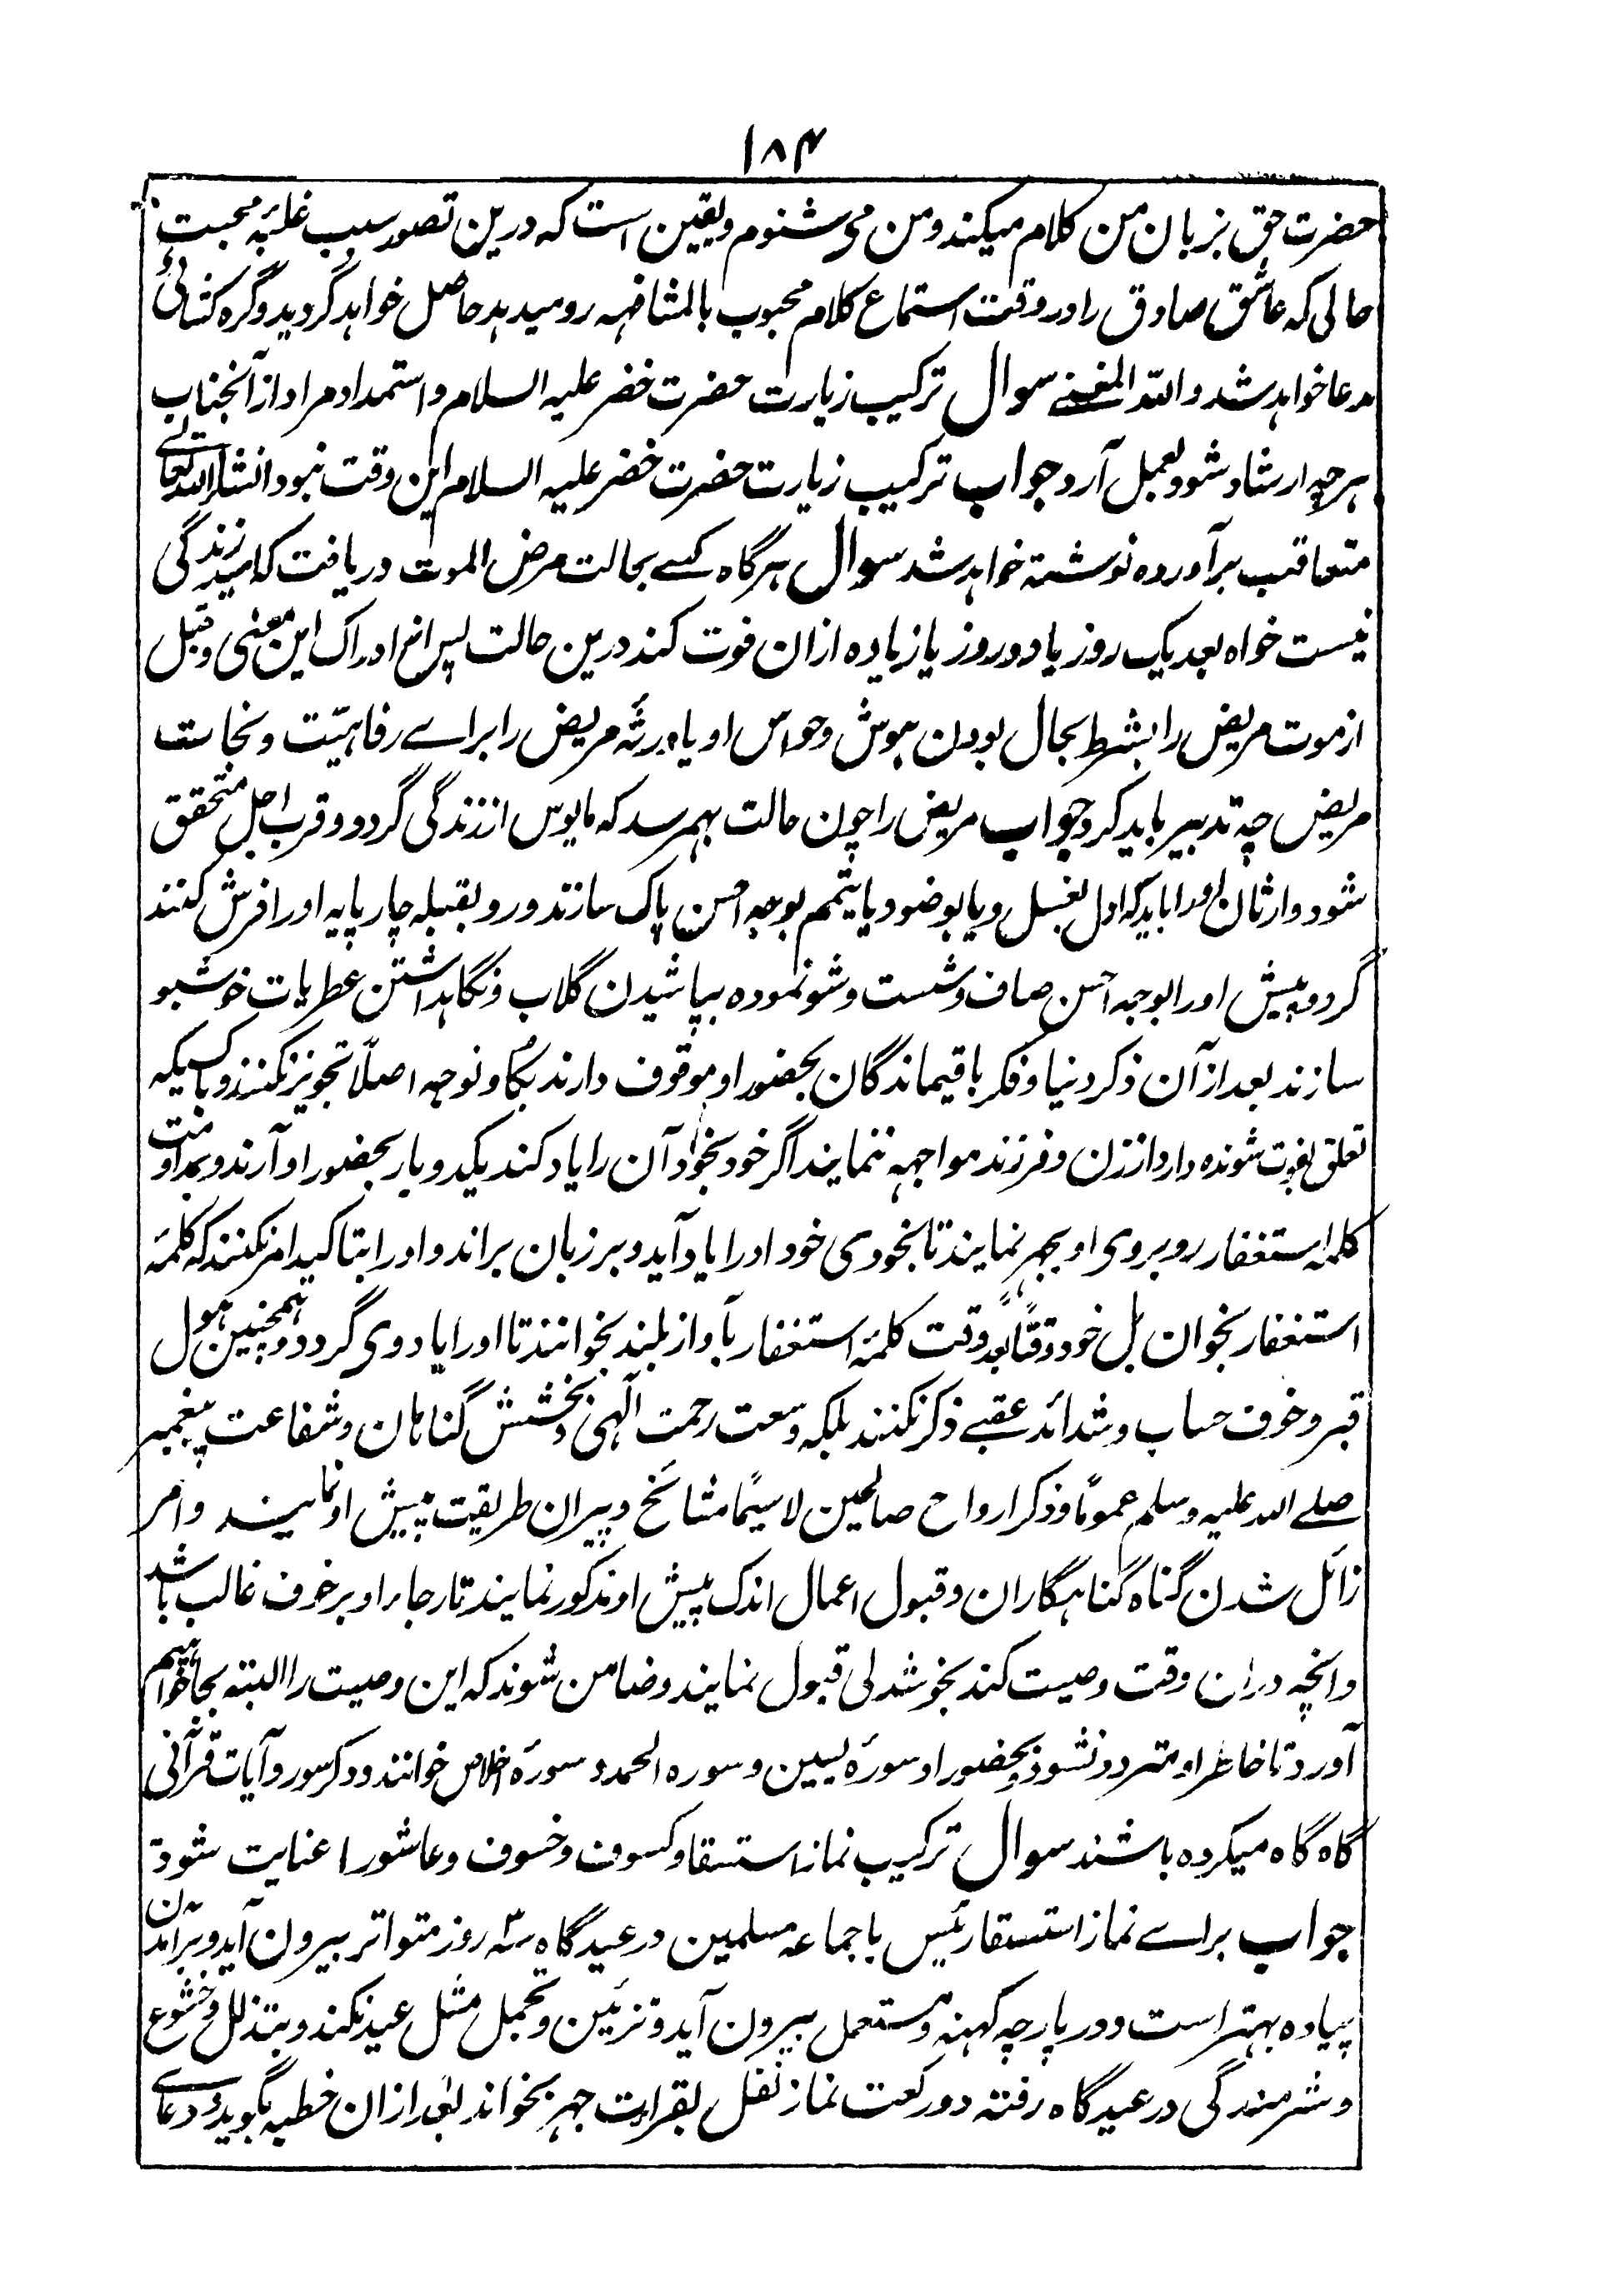 ۱۸۴
حضرت حق بزبان من کلام میکند و من می شنوم و یقین است که درین تصور سبب غلبۂ محبت
حالی که عاشق صادق را در وقت استماع کلام محبوب بالمشافهه رو میدهد حاصل خواهد گردید و گره کشائی
مدعا خواهد شد والله المغنے سوال ترکیب زیارت حضرت خضر علیه السلام و استمداد مراد از آنجناب
هرچه ارشاد شود بعمل آرد جواب ترکیب زیارت حضرت خضر علیه السلام این وقت نبود انشاء الله تعالے
متعاقب برآورده نوشته خواهد شد سوال هرگاه کسے بحالت مرض الموت دریافت که امید زندگی
نیست خواه بعد یک روز یا دو روز یا زیاده ازان فوت کند درین حالت پس از ادراک این معنی و قبل
از موت مریض را بشرط بحال بودن هوش و حواس او یا ورثۂ مریض را براے رفاهیّت و نجات
مریض چه تدبیر باید کرد جواب مریض را چون حالت بهم رسد که مایوس از زندگی گردد و قرب اجل متحقق
شود وارثان او را باید که اول بغسل و یا بوضو و یا بتیمم بوجه احسن پاک سازند و رو بقبله چارپایه او را فرش کنند
گرد و پیش او را بوجه احسن صاف و شست و شو نموده بپاشیدن گلاب و نگاهداشتن عطریات خوشبو
سازند بعد از آن ذکر دنیا و فکر باقیماندگان بحضور او موقوف دارند بکا و نوحه اصلاً تجویز نکنند و با کسیکه
تعلق بفوت شونده دارد از زن و فرزند مواجهه ننمایند اگر خود بخود آن را یاد کند یکدو بار بحضور او آرند و بمداومت
کلمه استغفار روبروی او بجهر نمایند تا بخودی خود او را یاد آید و بر زبان براند و او را بتاکید امر نکنند که کلمۂ
استغفار بخوان بل خود وقتاً بعد وقت کلمۂ استغفار بآواز بلند بخوانند تا او را یاد وی گردد و همچنین هول
قبر و خوف حساب و شدائد عقبے ذکر نکنند بلکه وسعت رحمت الٰهی و بخشش گناهان و شفاعت پیغمبر
صلے الله علیه وسلم عموماً و ذکر ارواح صالحین لاسیما مشائخ و پیران طریقت پیش او نمایند و امر
زائل شدن گناه گناهگاران و قبول اعمال اندک پیش او مذکور نمایند تا رجاء او بر خوف غالب باشد
و انچه دران وقت وصیت کند بخوشدلی قبول نمایند و ضامن شوند که این وصیت را البته بجا خواهیم
آورد تا خاطر او متردد نشود و بحضور او سورۂ یسین و سوره الحمد و سورۂ اخلاص خوانند و دگر سور و آیات قرآنی
گاه گاه میکرده باشند سوال ترکیب نماز استسقا و کسوف و خسوف و عاشورا عنایت شود
جواب براے نماز استسقا رئیس با جماعه مسلمین در عیدگاه سه روز متواتر بیرون آید و برآمدن
پیاده بهتر است و در پارچه کهنه و مستعمل بیرون آید و تزئین و تجمل مثل عید نکند و بتذلل و خشوع
و شرمندگی در عیدگاه رفته دو رکعت نماز نفل بقراءت جهر بخواند بعد ازان خطبه بگوید و دعاے